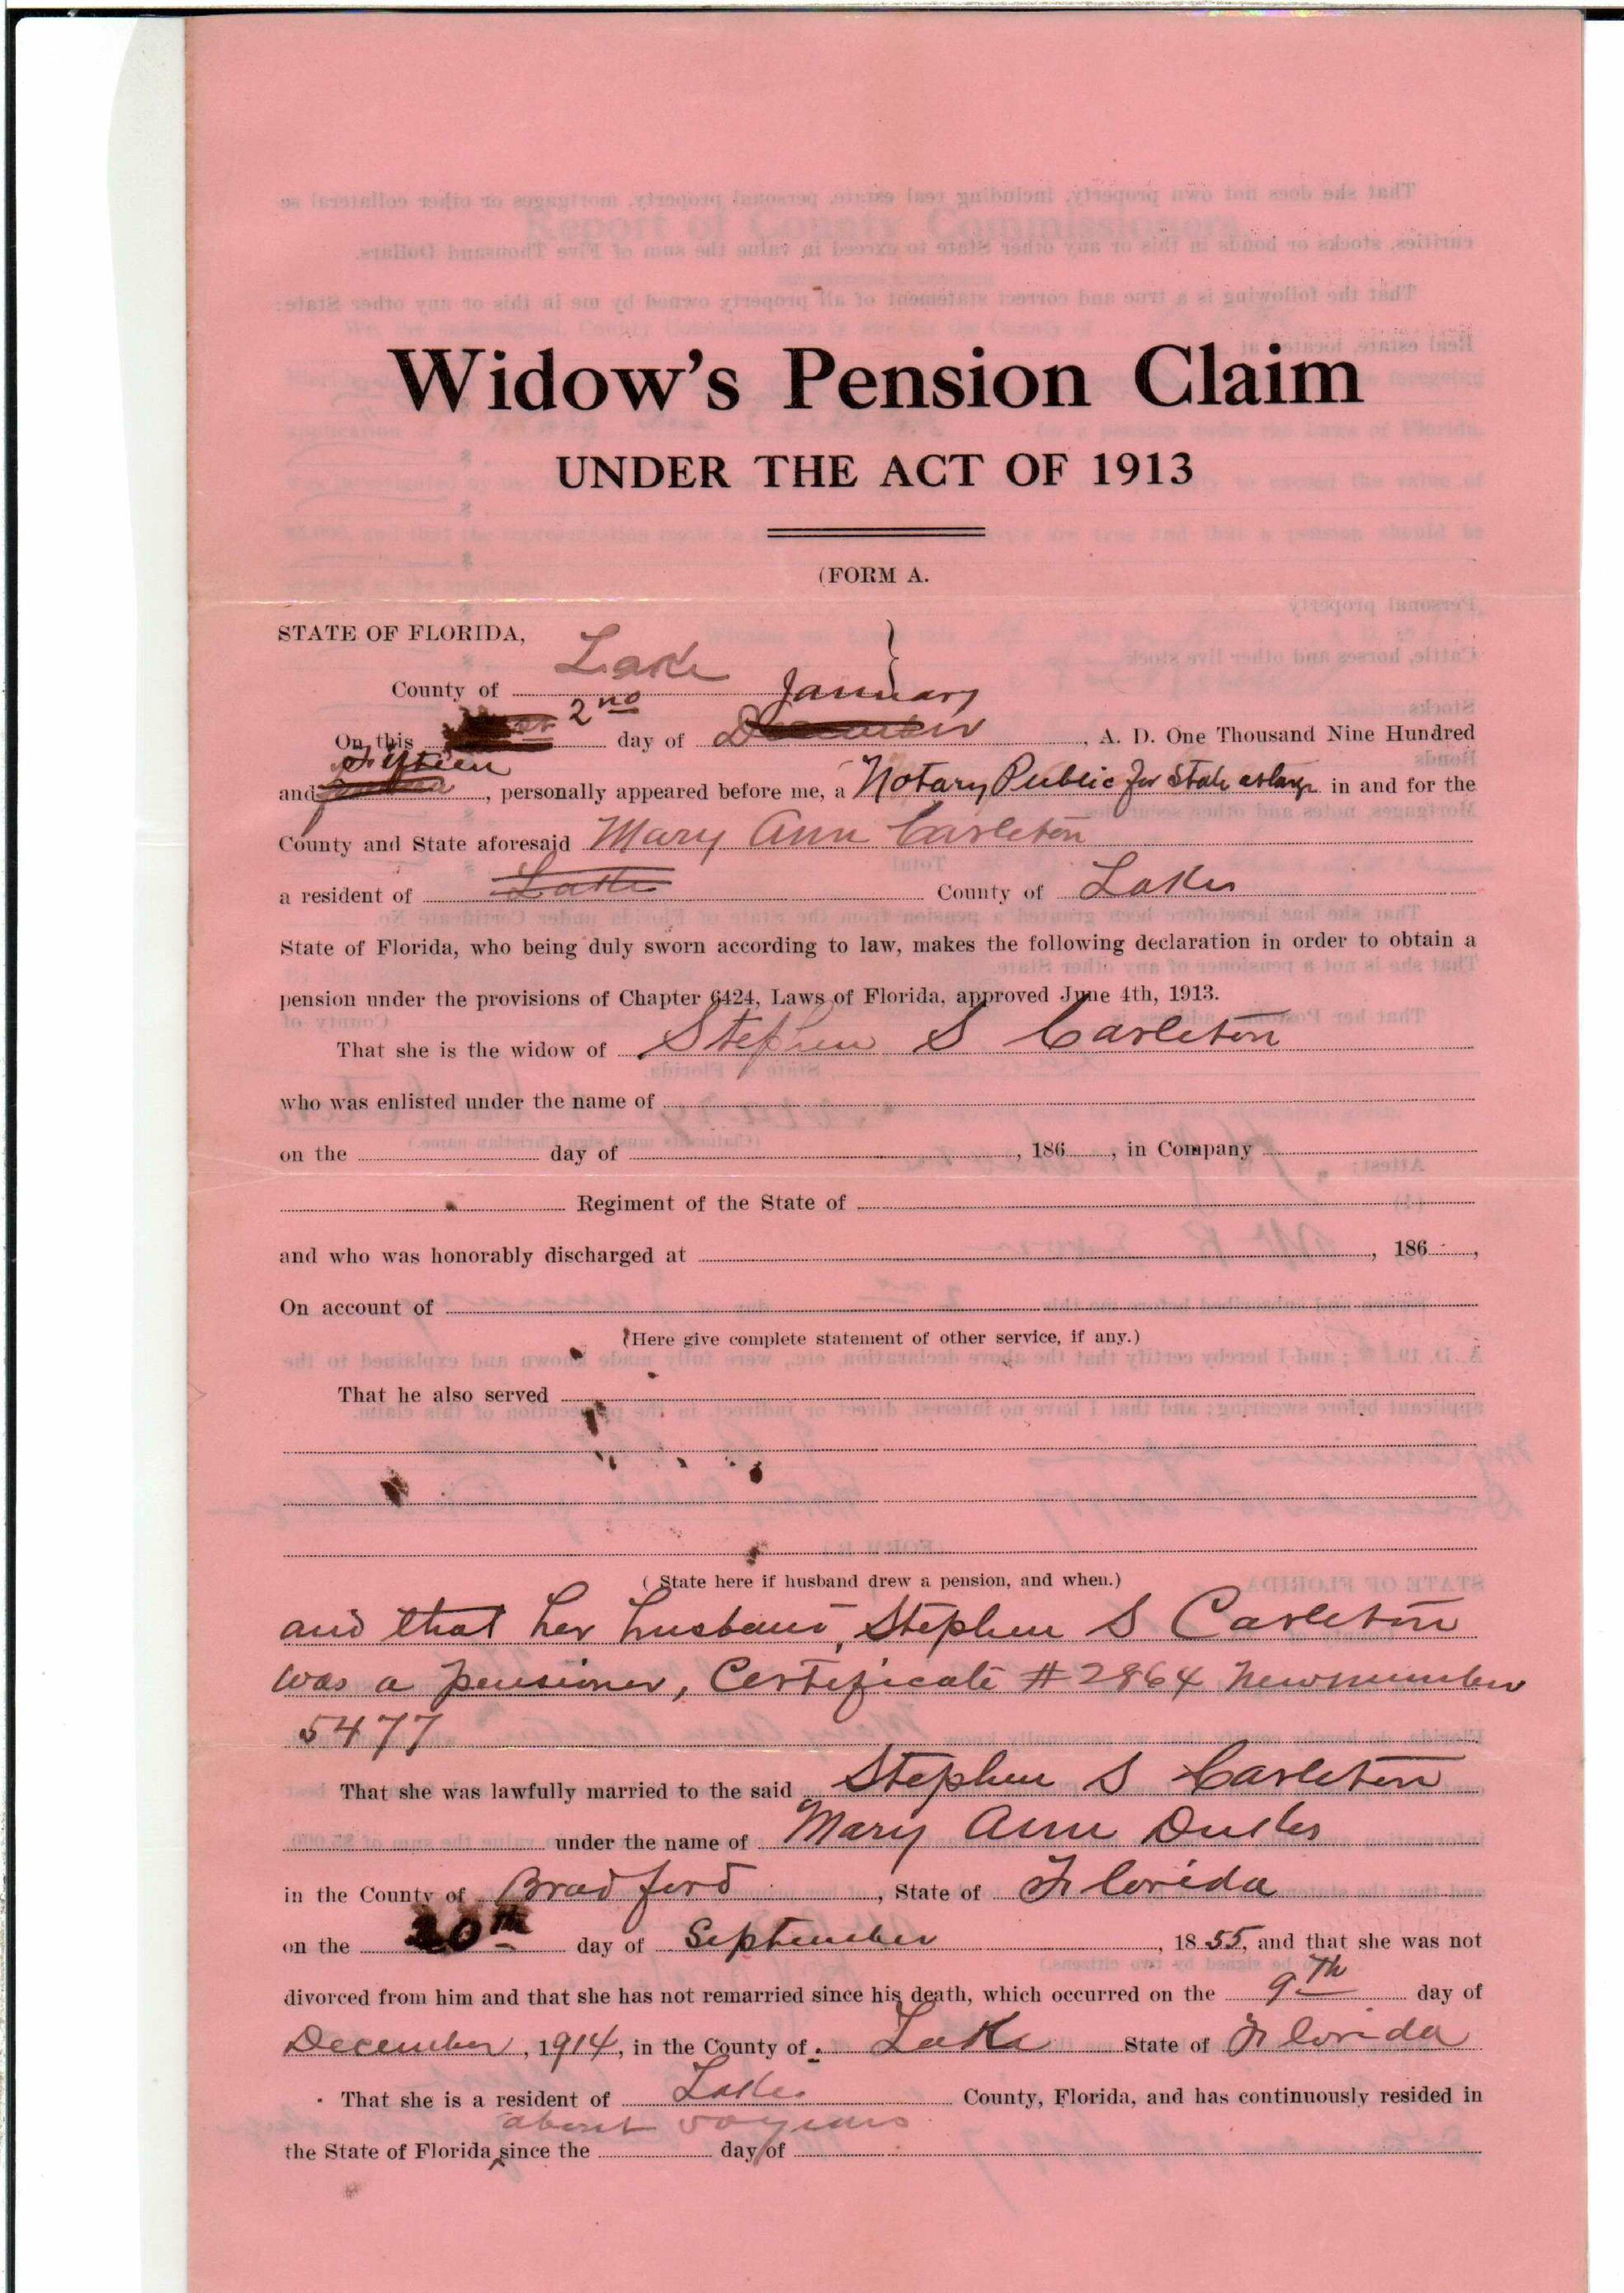 Widow's Pension Claim
UNDER THE ACT OF 1913
(FORM A.
STATE OF FLORIDA,
County of Lake
January
On this 2nd day of December, A. D. One Thousand Nine Hundred
Fifteen
and, personally appeared before me, a Notary Public for State at large in and for the
County and State aforesaid Mary Ann Carleton
a resident of Lake County of Lake
State of Florida, who being duly sworn according to law, makes the following declaration in order to obtain a
pension under the provisions of Chapter 6424, Laws of Florida, approved June 4th, 1913.
That she is the widow of Stephen S Carleton
who was enlisted under the name of
on the day of , 186 , in Company
Regiment of the State of
and who was honorably discharged at , 186 ,
On account of
(Here give complete statement of other service, if any.)
That he also served
( State here if husband drew a pension, and when.)
and that her husband, Stephen S Carleton
was a pensioner, Certificate # 2864 New number
5477
That she was lawfully married to the said Stephen S Carleton
under the name of Mary Ann
in the County of Bradford, State of Florida
on the 20th day of September, 1855, and that she was not
divorced from him and that she has not remarried since his death, which occurred on the 9th day of
December, 1914, in the County of Lake State of Florida
That she is a resident of Lake County, Florida, and has continuously resided in
about 50 years
the State of Florida since the day of